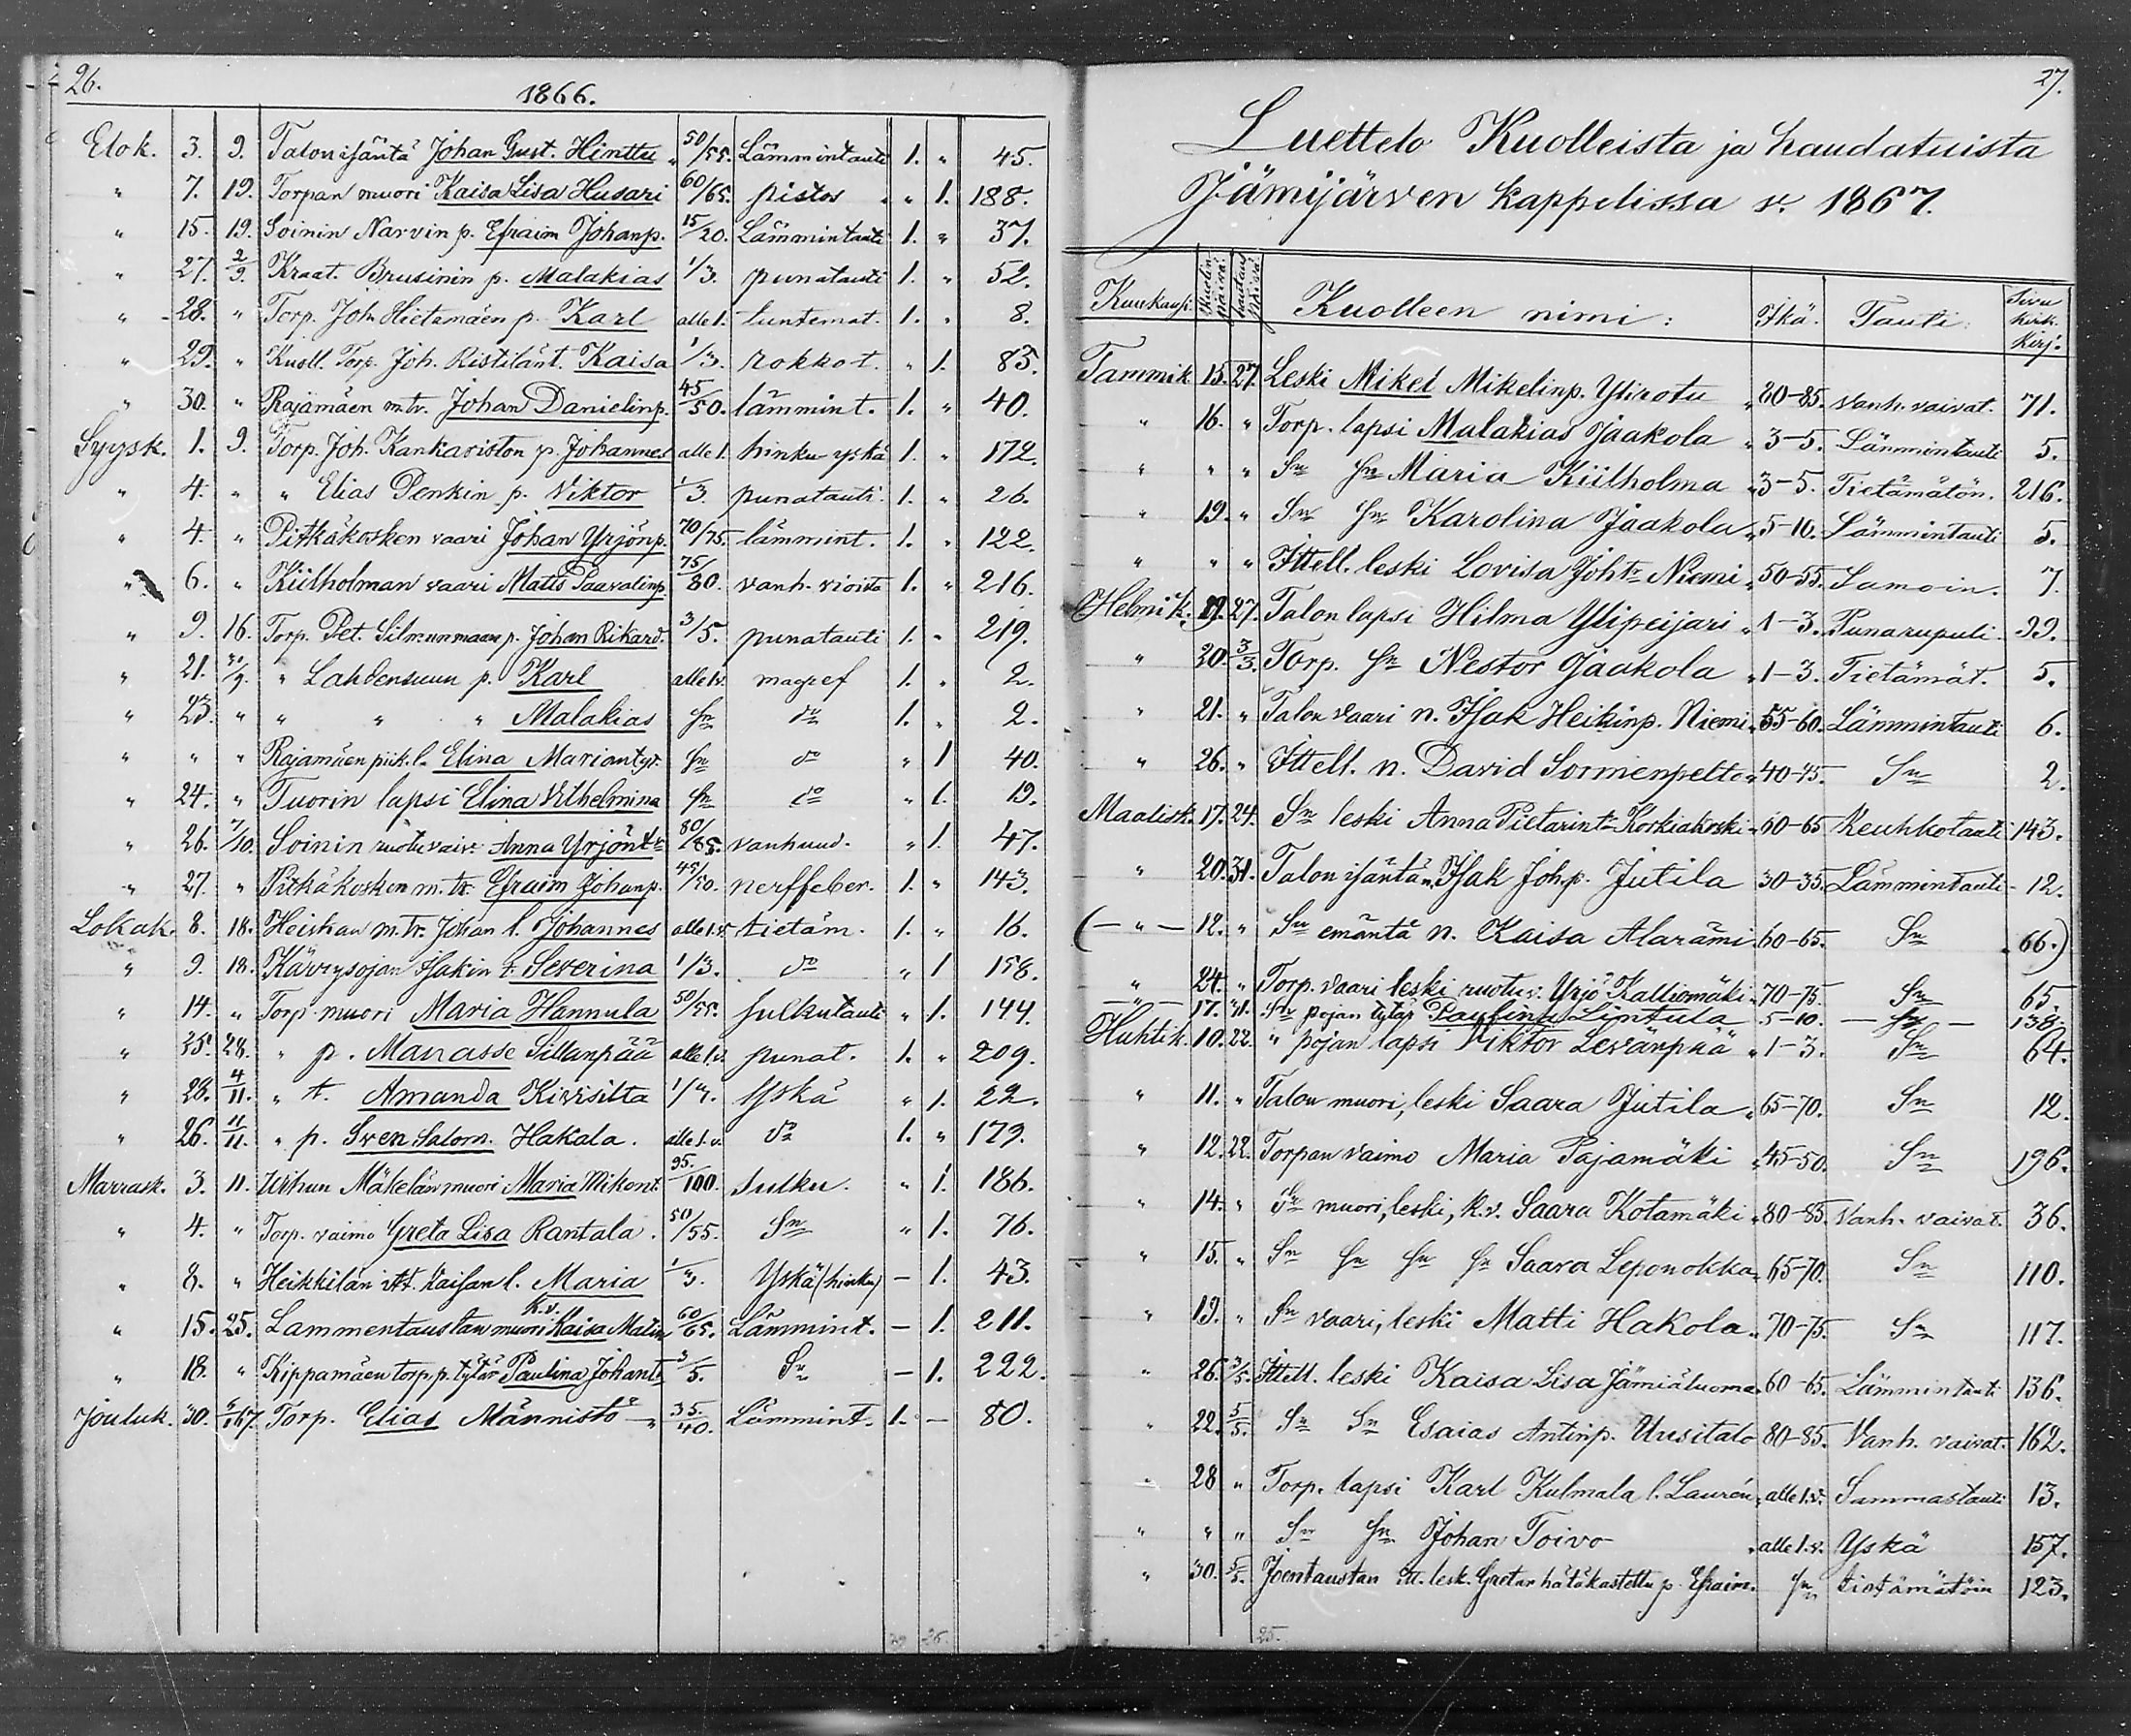 26.
1866.
Elok. 3. 9. Talon isäntä Johan Gust. Hinttu 50/55. Lämmintauti 1. " 45.
" 7. 19. Torpan muori Kaisa Lisa Husari 60/65. pistos " 1. 188.
" 15. 19. Soinin Narvin p. Efraim Johanp. 15/20. Lämmintauti 1. " 37.
" 27. 2/9. Kraat. Brusinin p. Malakias 1/3. punatauti 1. " 52.
" 28. " Torp. Joh. Hietamäen p. Karl alle 1. tuntemat. 1. " 8.
" 29. " Kuoll. Torp. Joh. Ristilän t. Kaisa 1/3. rokko t. " 1. 83.
" 30. " Rajamäen m.tr. Johan Danielinp. 45/50. lämmint. 1. " 40.
Syysk. 1. 9. Torp. Joh. Kankariston p. Johannes alle 1. hinku yskä 1. " 172.
" 4. " " Elias Penkin p. Viktor 1/3. punatauti 1. " 26.
" 4. " Pitkäkosken vaari Johan Yrjönp. 70/75. lämmint. 1. " 122.
" 6. " Kiilholman vaari Matts Paavalinp. 75/80. vanh. vioista 1. " 216.
" 9. 16. Torp. Pet. Silmunmaan p. Johan Rikard. 3/5. punatauti 1. " 219.
" 21. 30/9. " Lahdensuun p. Karl alle 1.v. magref 1. " 2.
" 23. " " " " Malakias Sn do 1. " 2.
" " " Rajamäen piik. l. Elina Mariantyt. Sn do " 1 40.
" 24. " Tuorin lapsi Elina Vilhelmina Sn do " 1. 19.
" 26. 7/10. Soinin ruotuvaiv. Anna Yrjöntr 80/85. vanhuud. " 1. 47.
" 27. " Pitkäkosken m. tr. Efraim Johanp. 45/50. nerffeber. 1. " 143.
Lokak. 8. 18. Heiskan m.tr. Johan l. Johannes alle 1.v. tietäm. 1. " 16.
" 9. 18. Kärrysojan Isakin t. Severina 1/3. do " 1 158.
" 14. " Torp. muori Maria Hannula 50/55. sulkutauti " 1. 144.
" 25. 28. " p. Manasse Sillanpää alle 1.v. punat. 1. " 209.
" 28. 4/11. " t. Amanda Kivisilta Yskä " 1. 22.
" 26. 11/11. " p. Sven Salom. Hakala. alle 1.v. do 1. " 179.
Marrask. 3. 11. Mäkelän muori Maria Mikont. 95/100. Sulku. " 1. 186.
" 4. " Torp. vaimo Greta Lisa Rantala. 50/55. Sn " 1. 76.
" 8. " Heikkilän itt. Kaisan l. Maria 1/3. Yskä (hinku) – 1. 43.
" 15. 25. Lammentaustan muori k.v. Kaisa Matin 60/65. Lämmint. – 1. 211.
" 18. " Kippamäen torp. p. tytär Paulina Johant. 3/5. Sn – 1. 222.
Jouluk. 30. 6/1 67. Torp. Elias Männistö 35/40. Lämmint. 1. – 80.
26.
27.
Luettelo Kuolleista ja haudatuista
Jämijärven kappelissa v. 1867.
Kuukausi. Kuolin päivä. hautaus päivä. Kuolleen nimi: Ikä. Tauti: Sivu kirk. kirj.
Tammik. 15. 27. Leski Mikel Mikelinp. Ylirotu 80–85. Vanh. vaivat. 71.
" 16. " Torp. lapsi Malakias Jaakola 3–5. Lämmintauti 5.
" " " Sn Sn Maria Kiilholma 3–5. Tietämätön. 216.
" 19. " Sn Sn Karolina Jaakola 5–10. Lämmintauti 5.
" " " Ittell. leski Lovisa Johtr Niemi 50–55. Samoin. 7.
Helmik. 19. 27. Talon lapsi Hilma Ylipeijari 1–3. Punarupuli 99.
" 20. 3/3. Torp. Sn Nestor Jaakola 1–3. Tietämät. 5.
" 21. " Talon vaari n. Isak Heikinp. Niemi 55–60. Lämmintauti 6.
" 26. " Ittell. n. David Sormenpelto 40–45. Sn 2.
Maalisk. 17. 24. Sn leski Anna Pietarintr Koskiakoski 60–65 Keuhkotauti 143.
" 20. 31. Talon isäntä n. Isak Joh.p. Jutila 30–35. Lämmintauti 12.
( – " – 12. " Sn emäntä n. Kaisa Alarämi 60–65. Sn 66.)
" 24. " Torp. vaari leski ruotuv. Yrjö Kalliomäki 70–75. Sn 65.
– " – 17. 31. Sn pojan tytär Paulina Lintula 5–10. – Sn – 138.
Huhtik. 10. 22. " pojan lapsi Viktor Levänpää 1–3. Sn 64.
" 11. " Talon muori, leski Saara Jutila 65–70. Sn 12.
" 12. 22. Torpan vaimo Maria Pajamäki 45–50. Sn 196.
" 14. " Sn muori, leski, k.v. Saara Kotamäki 80–85. Vanh. vaivat. 36.
" 15. " Sn Sn Sn Sn Saara Leponokka 65–70. Sn 110.
" 19. " Sn vaari, leski Matti Hakola 70–75. Sn 117.
" 26. 3/5. Ittell. leski Kaisa Lisa Jämiäluoma 60–65. Lämmintauti 136.
" 22. 5/5. Sn Sn Esaias Antinp. Uusitalo 80–85. Vanh. vaivat. 162.
" 28 " Torp. lapsi Karl Kulmala l. Laurén alle 1.v. Sammastauti 13.
" " " Sn Sn Johan Toivo alle 1.v. Yskä 157.
" 30. 5/5. Joentaustan itt. lesk. Gretan hätäkastettu p. Efraim. Sn tietämätöin 123.
25.